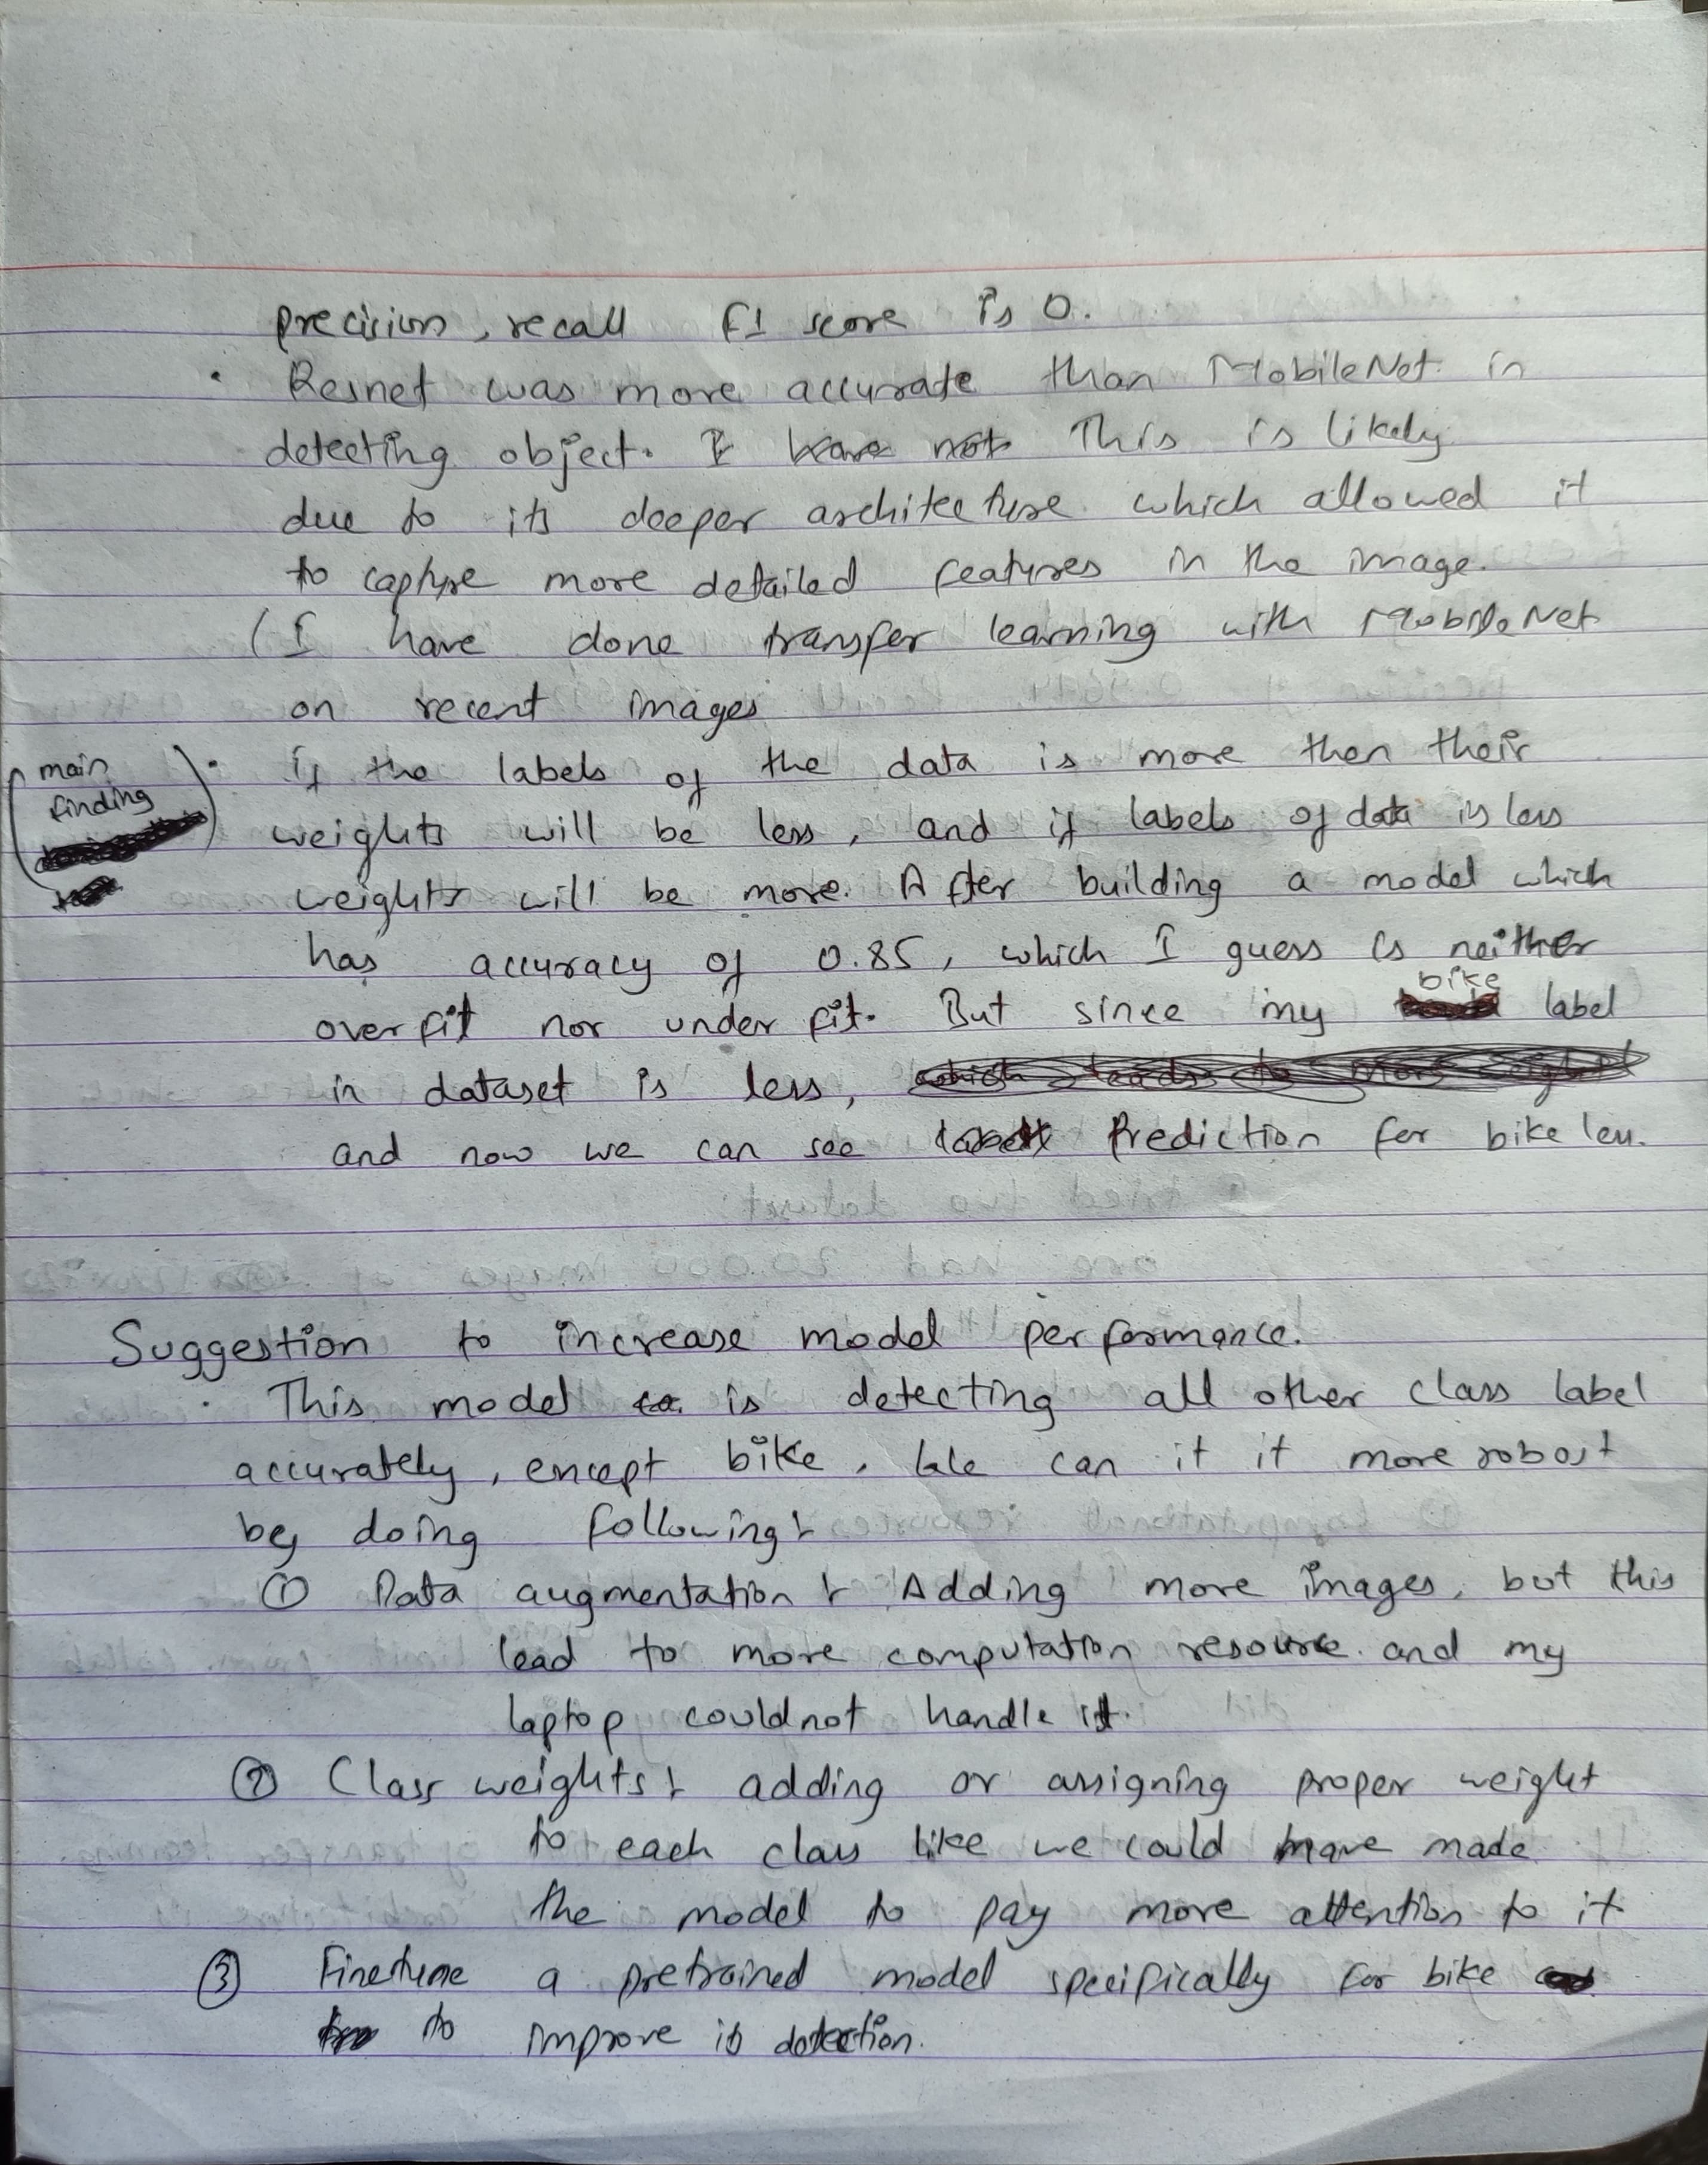 precision, recall f1 score is 0.
• Resnet was more accurate than MobileNet in
detecting object. I have not This is likely
due to its deeper architecture which allowed it
to capture more detailed features in the image.
(I have done transfer learning with MobileNet
on recent images
main
finding
• if the labels of the data is more then their
weights will be less, and if labels of data is less
weights will be more. After building a model which
has accuracy of 0.85, which I guess is neither
overfit nor under fit. But since my bike label
in dataset is less,
and now we can see Prediction for bike less.
Suggestion to increase model performance.
• This model is detecting all other class label
accurately, encept bike, We can it it more robost
by doing following:
① Data augmentation : Adding more images, but this
lead to more computation resource and my
laptop couldnot handle it.
② Class weights : adding or assigning proper weight
to each class like we could have made
the model to pay more attention to it
③ Finetune a pretrained model specifically for bike
to improve it detection.